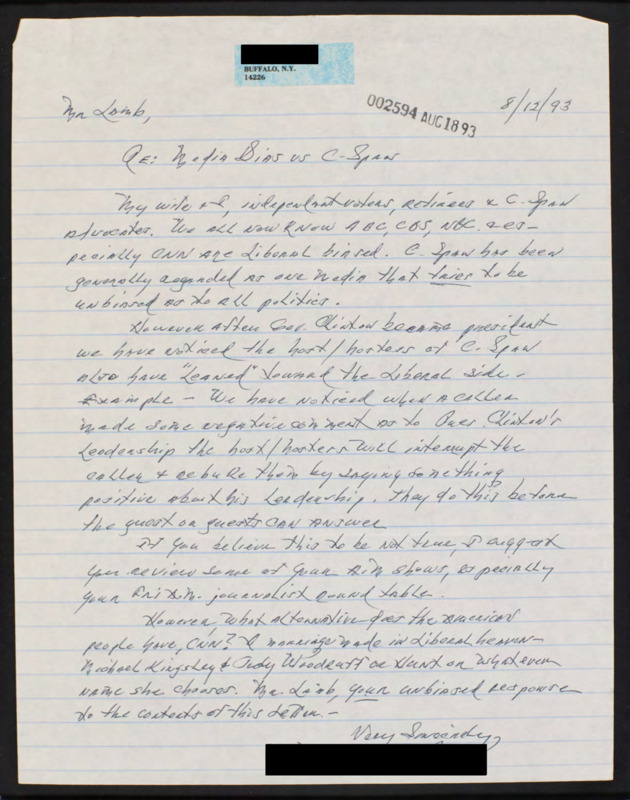 BUFFALO, N.Y.
14226
Mr Lamb,
002594 AUG 18 93
8/12/93
Re: Media Bias vs C-Span
My wife & I, independant voters, retirees & C-Span
advocates. We all now know ABC, CBS, NBC & es-
pecially CNN are Liberal biased. C-Span has been
generally regarded as one media that tries to be
unbiased as to all politics.
However after Gov. Clinton became president
we have noticed the host/hosters of C-Span
also have "Leaned" toward the Liberal side.
Example - We have noticed when a caller
made some negative comment as to Pres. Clinton's
Leadership the host/hosters will interrupt the
caller & rebuke them by saying something
positive about his Leadership. They do this before
the guest or guests can answer
If you believe this to be not true, I suggest
you review some of your A.M. shows, especially
your Fri A.M. journalist round table.
However, what alternative does the American
people have, CNN? A marriage made in Liberal heaven-
Michael Kingsley & Judy Woodruff or Hunt or whatever
name she chooses. Mr. Lamb, your unbiased response
to the contents of this letter.-
Very Sincerely,